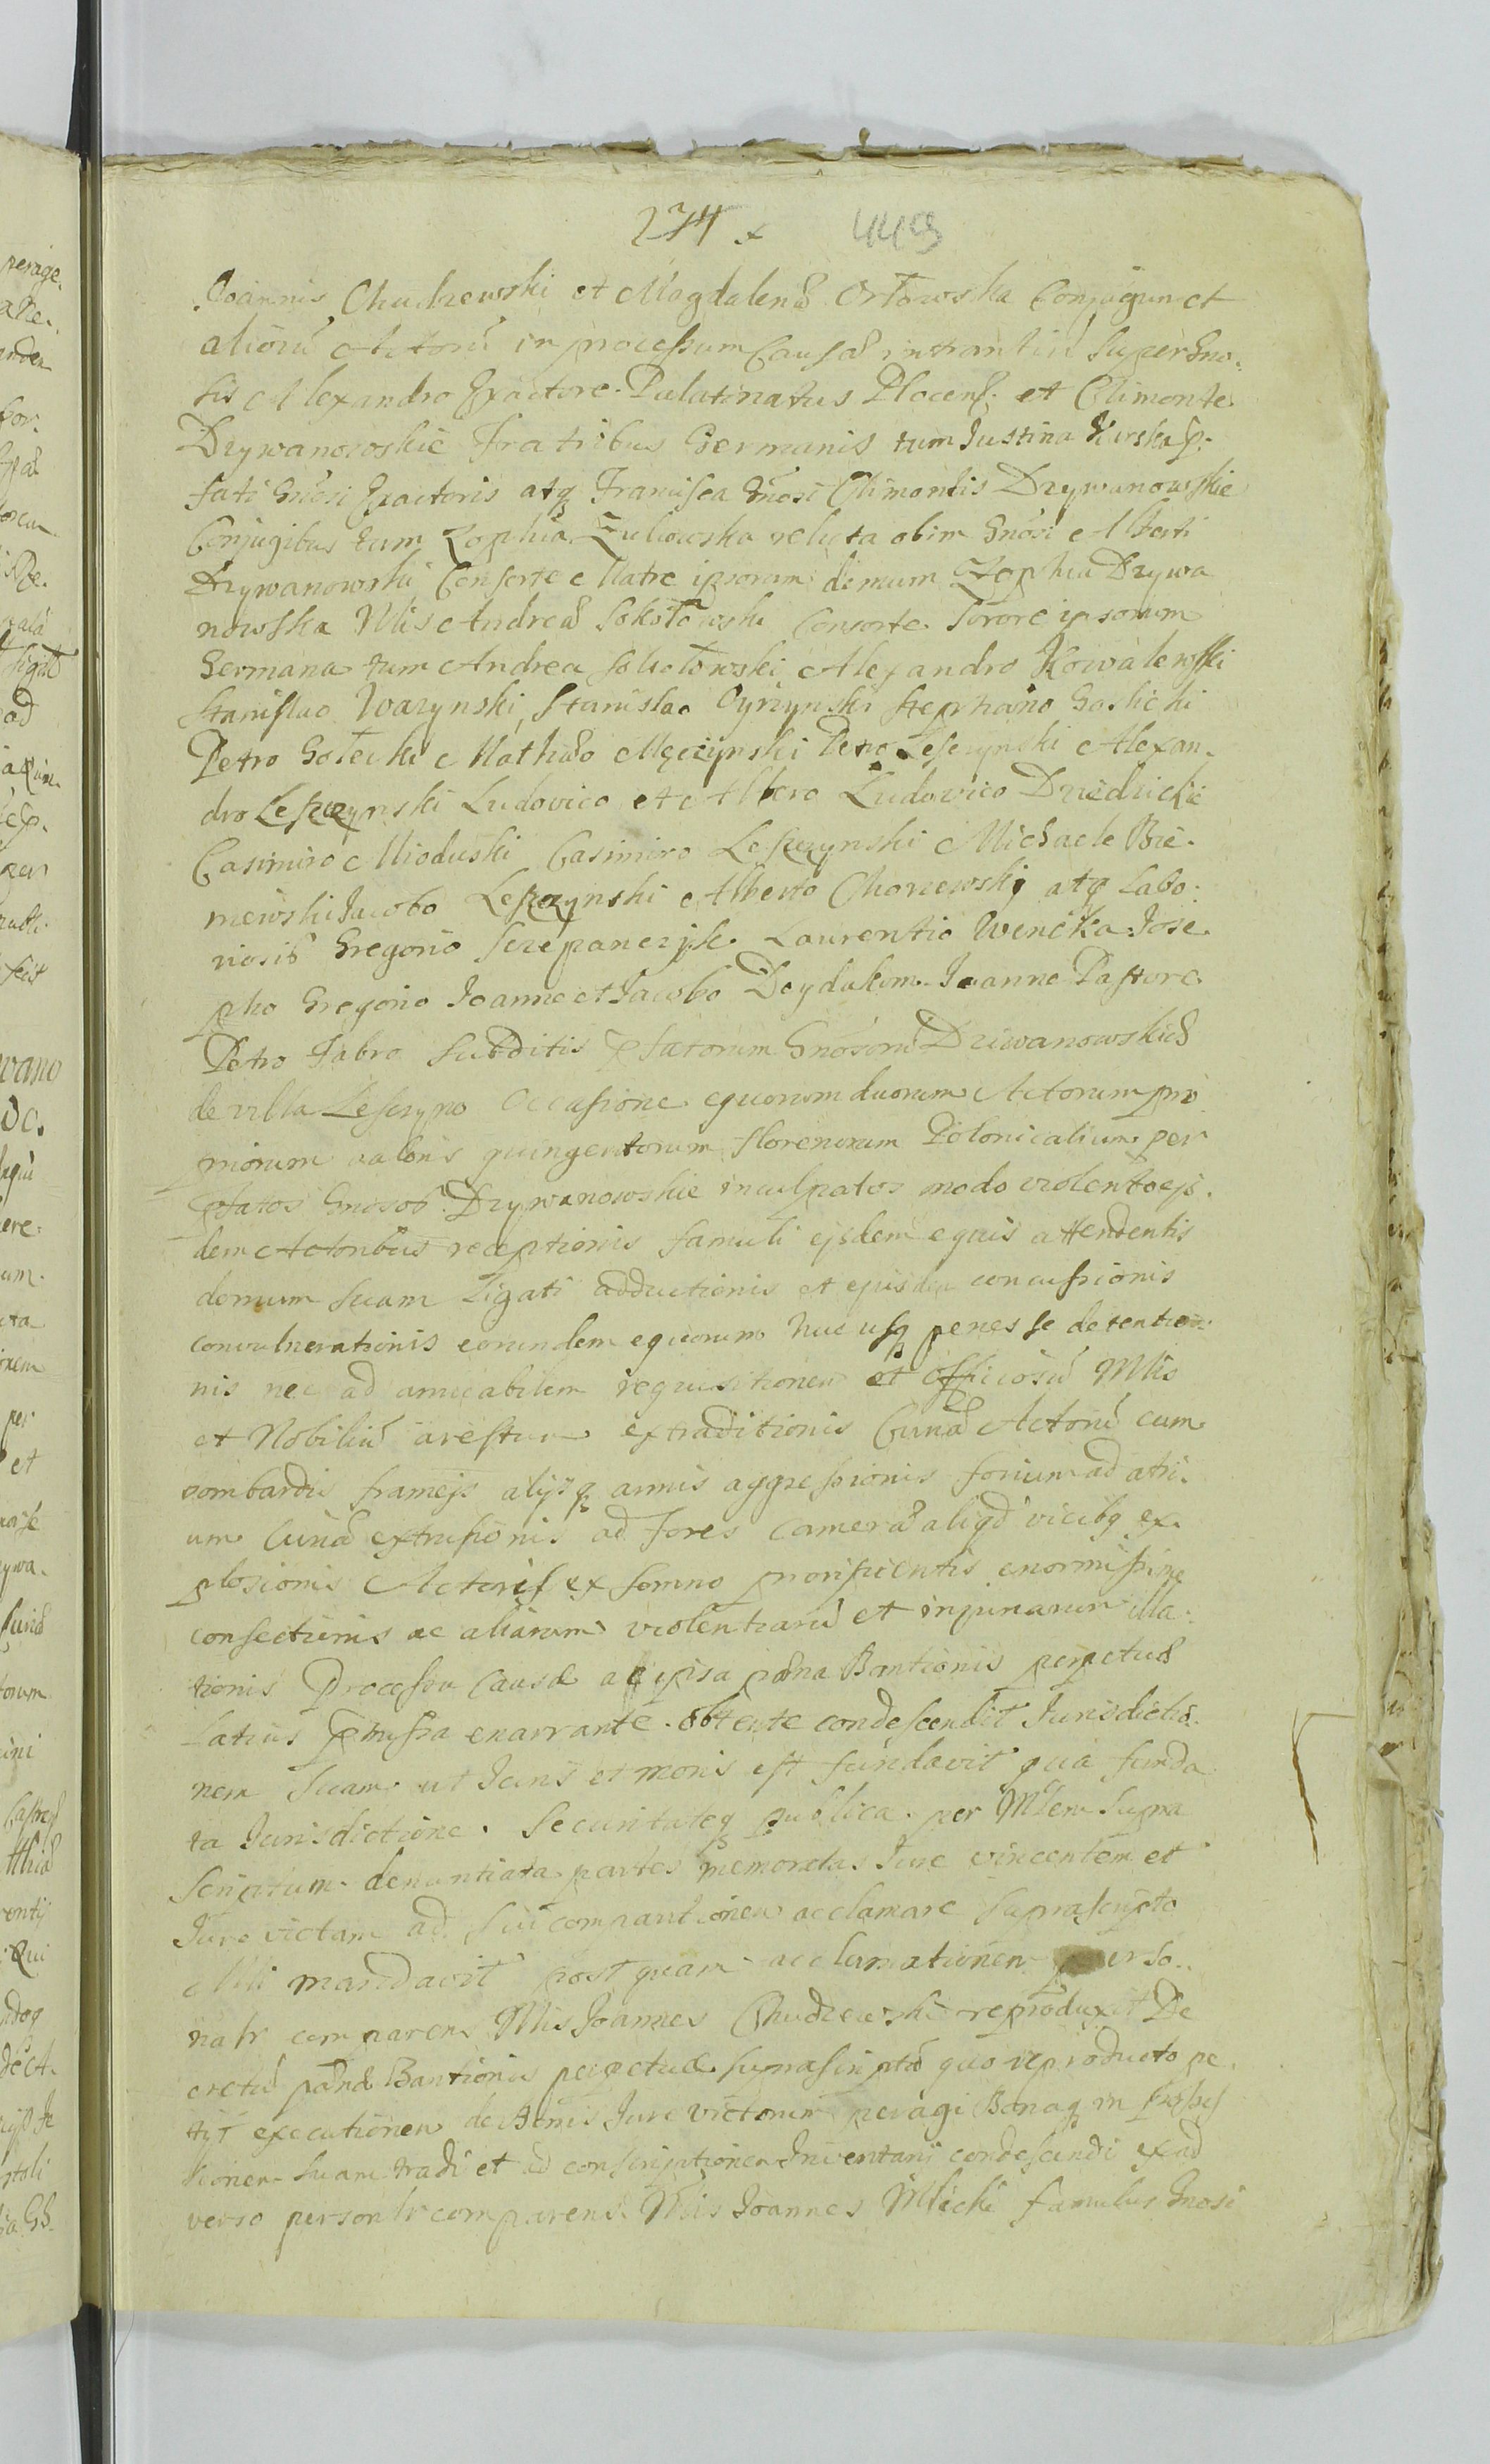 274 x 449
Joannis Chudzewski et Magdalenæ Orłowska Conjugum et
aliorũ Actorũ in processum Causæ intrantiũ super Gno-
sis Alexandro Exactore Palatinatus Plocens: et Climonte
Drywanowskie Fratribus Germanis tum Justina Kurska p-
fati Gnosi Exactoris atq Francisca Gnosi Climontis Drywanowskie
Conjugibus tum Zophia Zukowska relicta olim Gnosi Alberti
Drywanowski Consorte Matre ipsorum demum Zophia Drywa
nowska Mlis Andreæ Sokołowski Consorte Sorore ipsorum
Germana tum Andrea Sokołowski Alexandro Kowalewski
Stanislao Wazynski, Stanislao Cyrzynski Stephano Goslicki
Petro Gołecki Mathæo Męczynski Petro Lesczynski Alexan-
dro Lesczynski Ludovico et Albero Ludovico Dziedzickie
Casimiro Mioduski Casimiro Lesczynski Michaele Bie-
niewski Jacobo Lesczynski Alberto Chorzewski atq Labo-
riosis Gregorio Sczepanczyk Laurentio Wencka Jose
pho Gregorio Joanne et Jacobo Deydukom Joanne Pastore
Petro Fabro Subditis pfatorum Gnosorũ Drzwanowskich
de villa Lesczyno Occasione equorum duorum Actorum pro
priorum valoris quingentorum florenorum Polonicalium per
pfatos Gnosos Drywanowskie inculpatos modo violento ejs-
dem Actoribus receptionis famuli ejsdem equis attendentis
domum suam ligati adductionis et ejusdem concussionis
convulnerationis eorundem equorum huc usq penes se detentio-
nis nec ad amicabilem requisitionem et officiosũ Mlis
et Nobiliũ arestum extraditionis Curiæ Actorũ cum
bombardis frameis alijsq armis aggressionis forium ad atri-
um Curiæ extrusionis ad fores cameræ aliqd vicibq ex-
plosionis Actoris ex somno prorsicentis enormissime
consectionis ac aliarum violentiarũ et injuriarum illa-
tionis Processu Causæ ac ipsa pæna Bannitionis perpetuæ
Latius præmissa enarrante obtente condescendit Jurisdictio-
nem Suam ut Juris et moris est fundavit qua funda
ta Jurisdictione Securitateq publica per Mlem supra
scriptum denuntiata partes memoratas Jure vincentem et
Jure victam ad sui comparitionem acclamare suprascripto
Mli mandavit post quam acclamationem perso-
nalr comparens Mlis Joannes Chudzewski reproduxit De
cretũ pænæ Bannitionis perpetuæ suprascriptæ quo reproducto pe-
tijt executionem de Bonis Jure victorum peragi Bonaq in posses
sionem suam tradi et ad conscriptionem Inventarij condescendi ex ad
verso personlr comparens Mlis Joannes Mlicki famulus Gnosi